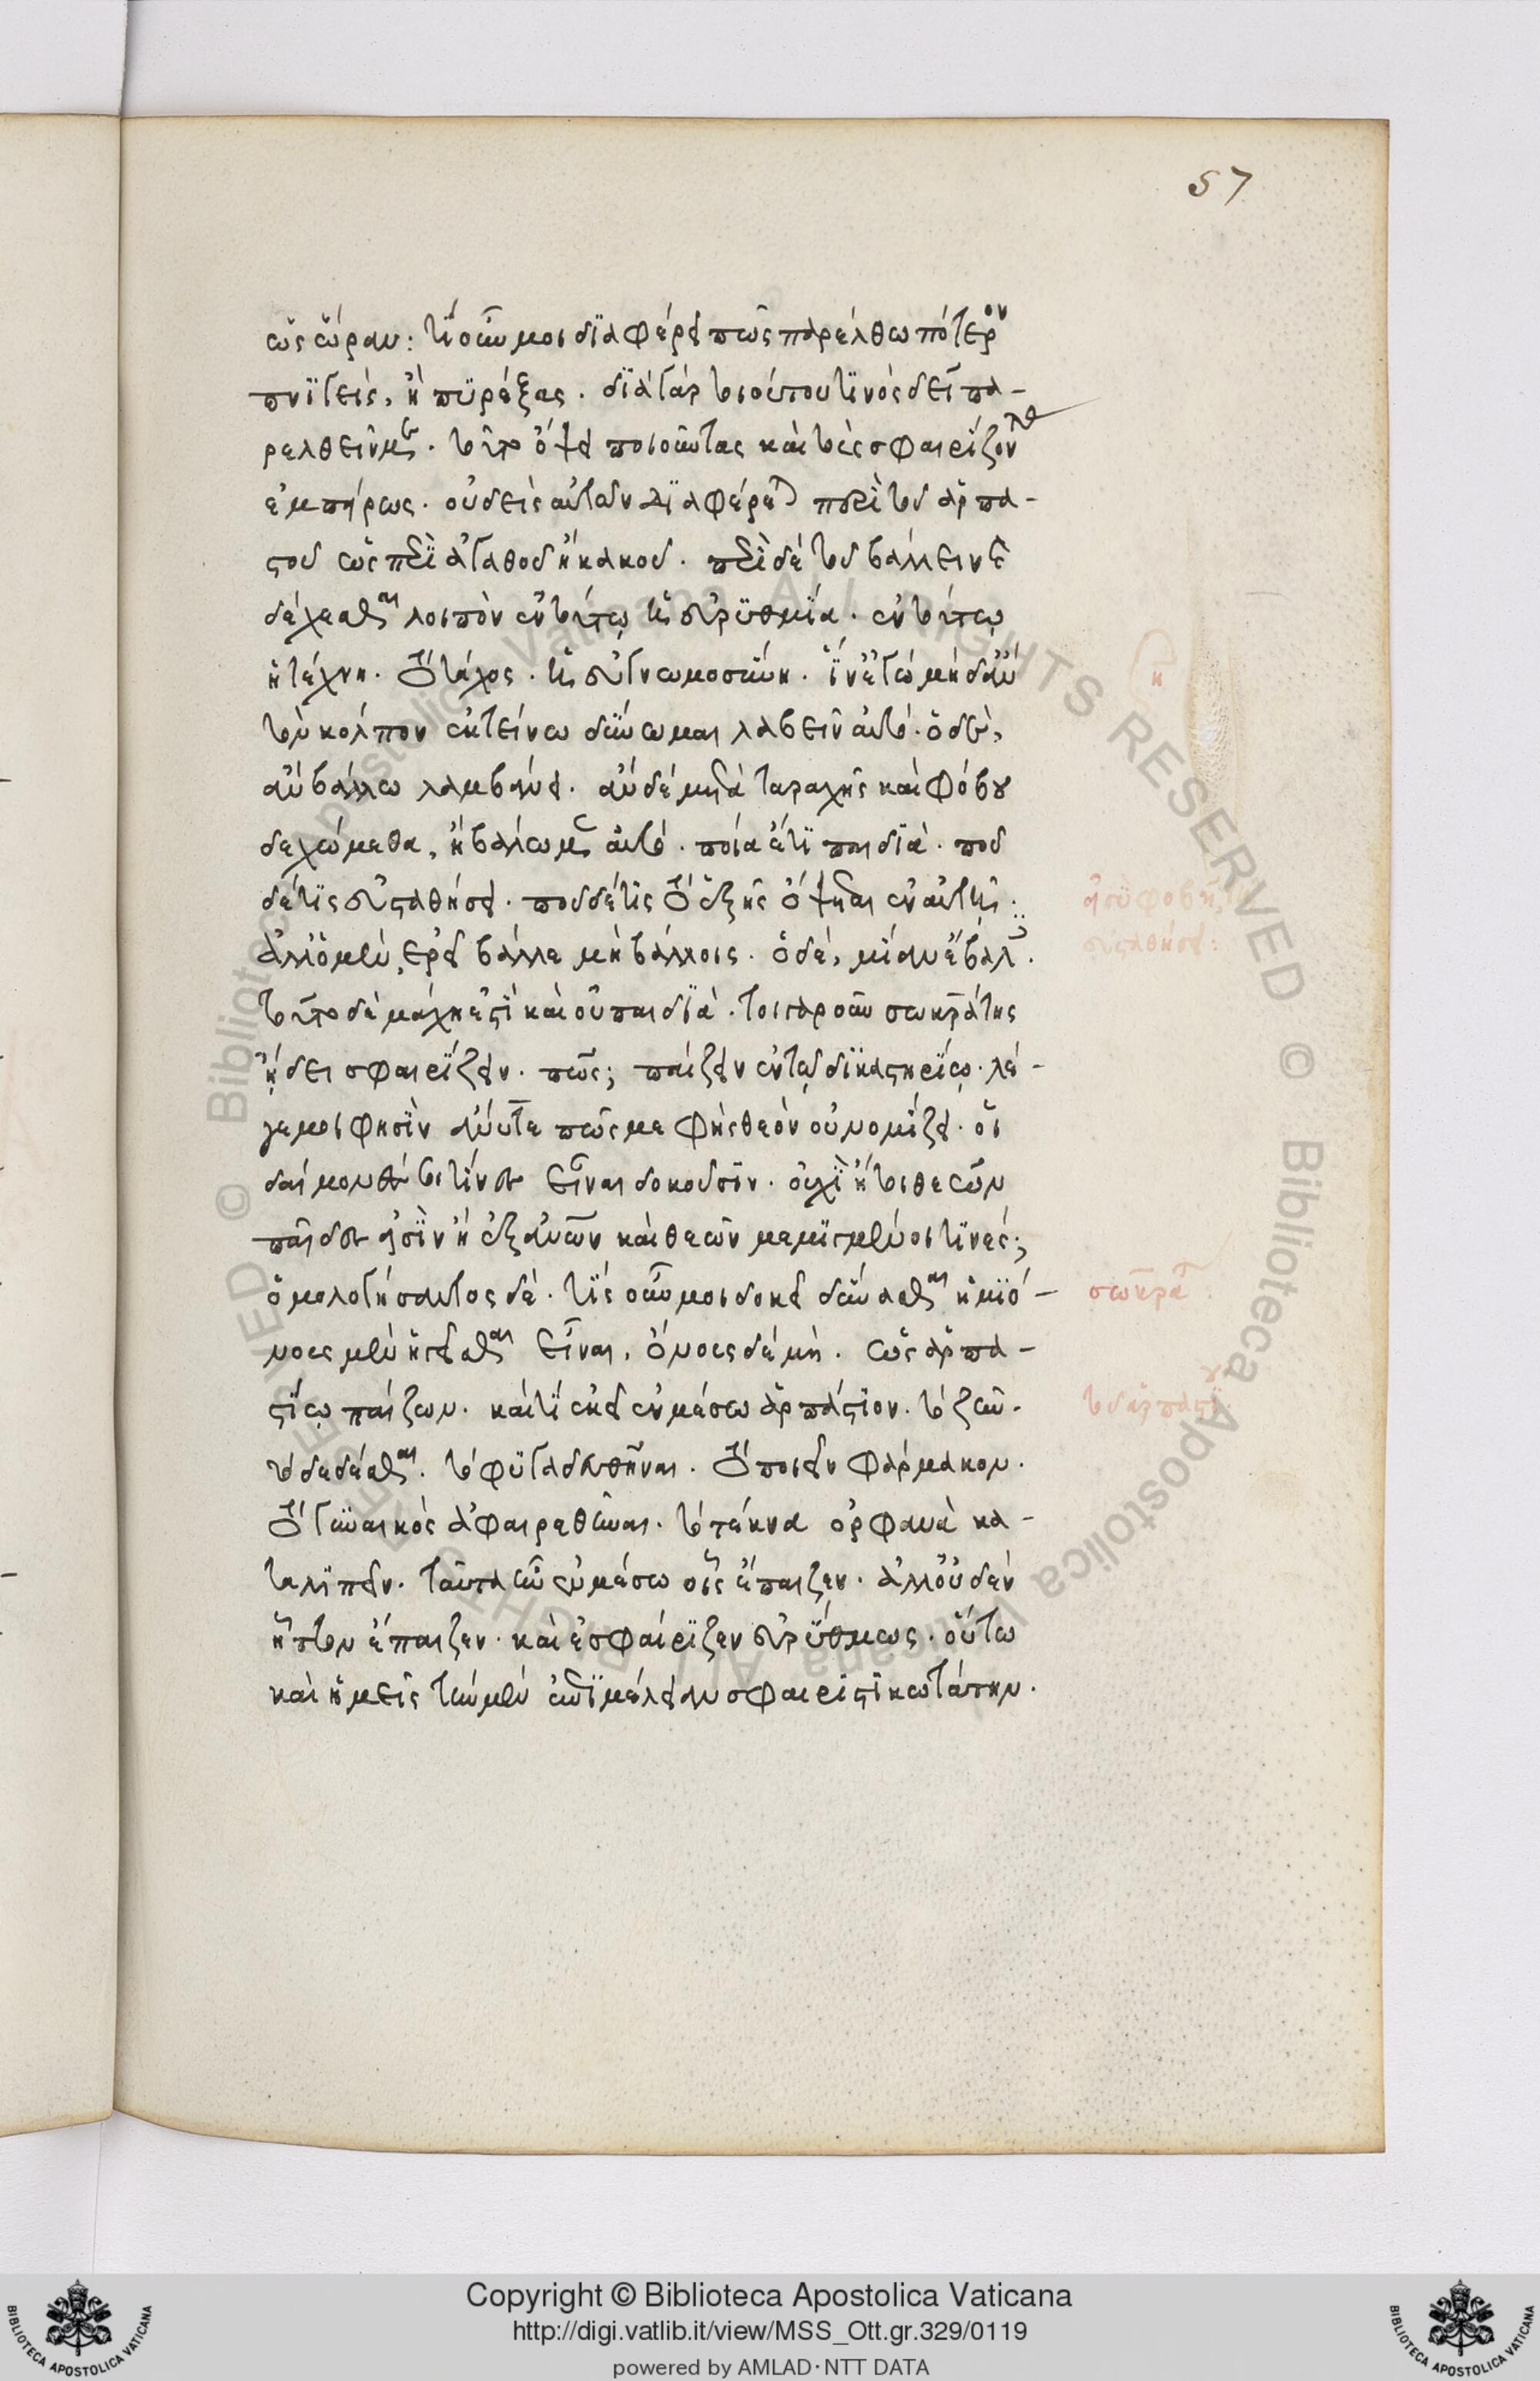 57
ὡς ὥραν: τί οὖν μοι διαφέρει πῶς παρέλθω πότερον
πνιγεὶς, ἢ πυρέξας. διὰ γὰρ τοιούτου τινὸς δεῖ πα-
ρελθεῖν με. τοῦτο ὄψει ποιοῦντας καὶ τοὺς σφαιρίζοντας
ἐμπείρως. οὐδεὶς αὐτῶν διαφέρεται περὶ τοῦ ἁρπα-
στοῦ ὡς περὶ ἀγαθοῦ ἢ κακοῦ. περὶ δὲ τοῦ βάλλειν καὶ
δέχεσθαι λοιπὸν ἐν τούτῳ ἡ εὐρυθμία. ἐν τούτῳ
ἡ τέχνη. τὸ τάχος. ἡ εὐγνωμοσύνη. ἵν' ἐγὼ μηδ' ἂν
τὸν κόλπον ἐκτείνω δύνωμαι λαβεῖν αὐτό. ὁ δὲ,
ἂν βάλλω λαμβάνει. ἂν δὲ μετὰ ταραχῆς καὶ φόβου
δεχώμεθα, ἢ βάλωμεν αὐτό. ποία ἔτι παιδιά. ποῦ
δέ τις εὐσταθήσει. ποῦ δέ τις τὸ ἑξῆς ὄψεται ἐν αὐτῇ;
ἀλλ' ὁ μὲν, ἐρεῖ βάλλε μὴ βάλλοις. ὁ δὲ, μίαν ἔβαλ.
τοῦτο δὲ μάχη ἐστὶ καὶ οὐ παιδιά. τοιγαροῦν σωκράτης
ᾔδει σφαιρίζειν. πῶς; παίζειν ἐν τῷ δικαστηρίῳ. λέ-
γε μοι φησὶν ἄνυτε πῶς με φὴς θεὸν οὐ νομίζει. οἱ
δαίμονές τοι τίνες εἶναι δοκοῦσιν. οὐχὶ ἤτοι θεῶν
παῖδες εἰσὶν ἢ ἐξ ἀνῶν καὶ θεῶν μεμιγμένοι τινές;
ὁμολογήσαντος δὲ. τίς οὖν μοι δοκεῖ δύνασθαι ἡμιό-
νους μὲν ἡγεῖσθαι εἶναι, ὄνους δὲ μή. ὡς ἁρπα-
στίῳ παίζων. καὶ τί ἐκεῖ ἐν μέσω ἁρπάστιον. τὸ ζῆν.
τὸ δεδέσθαι. τὸ φυγαδευθῆναι. τὸ ποιεῖν φάρμακον.
τὸ γυναικὸς ἀφαιρεθῆναι. τὸ τέκνα ὀρφανὰ κα-
ταλιπεῖν. ταῦτα ἦν ἐν μέσω οἷς ἔπαιζεν. ἀλλ' οὐδὲν
ἧττον ἔπαιζεν. καὶ ἐσφαίριζεν εὐρύθμως. οὕτω
καὶ ἡμεῖς τὴν μὲν ἐπιμέλειαν σφαιριστικωτάτην.
η
εὐσταθήσει:
σωκρα
τὸ ἁρπάστι
Copyright © Biblioteca Apostolica Vaticana
http://digi.vatlib.it/view/MSS_Ott.gr.329/0119
powered by AMLAD·NTT DATA